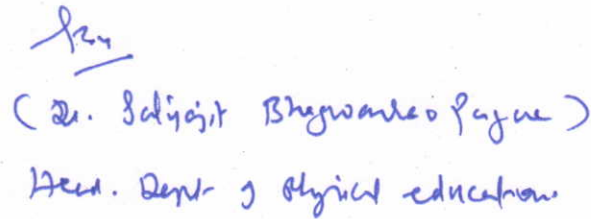 (Dr. Satyajit Bhagwanrao Pagare)
Head. Dept of Physical education